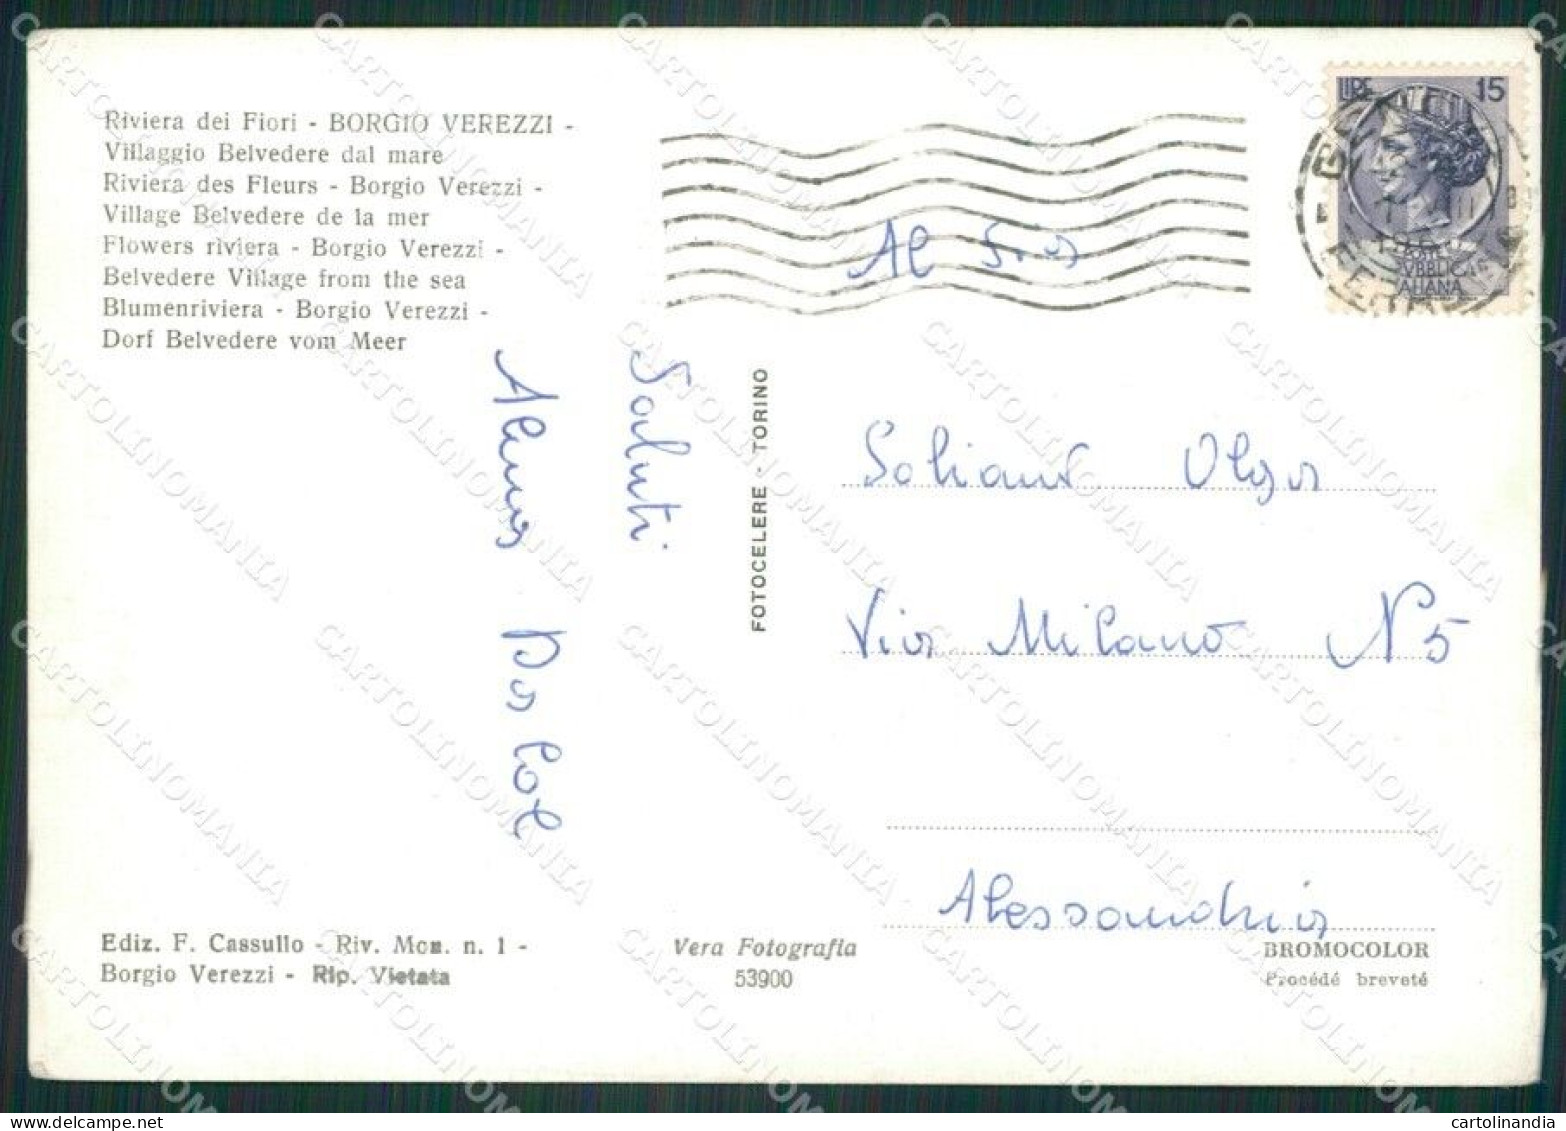 Riviera dei Fiori - BORGIO VEREZZI -
Villaggio Belvedere dal mare
Riviera des Fleurs - Borgio Verezzi -
Village Belvedere de la mer
Flowers riviera - Borgio Verezzi -
Belvedere Village from the sea
Blumenriviera - Borgio Verezzi -
Dorf Belvedere vom Meer
LIRE 15
Al
Saluti
FOTOCELERE - TORINO
Olga
Via Milano N 5
Alessandria
Ediz. F. Cassullo - Riv. Mon. n. 1 -
Borgio Verezzi - Rip. Vietata
Vera Fotografia
53900
BROMOCOLOR
Procédé breveté
CARTOLINOMANIA
cartolinandia